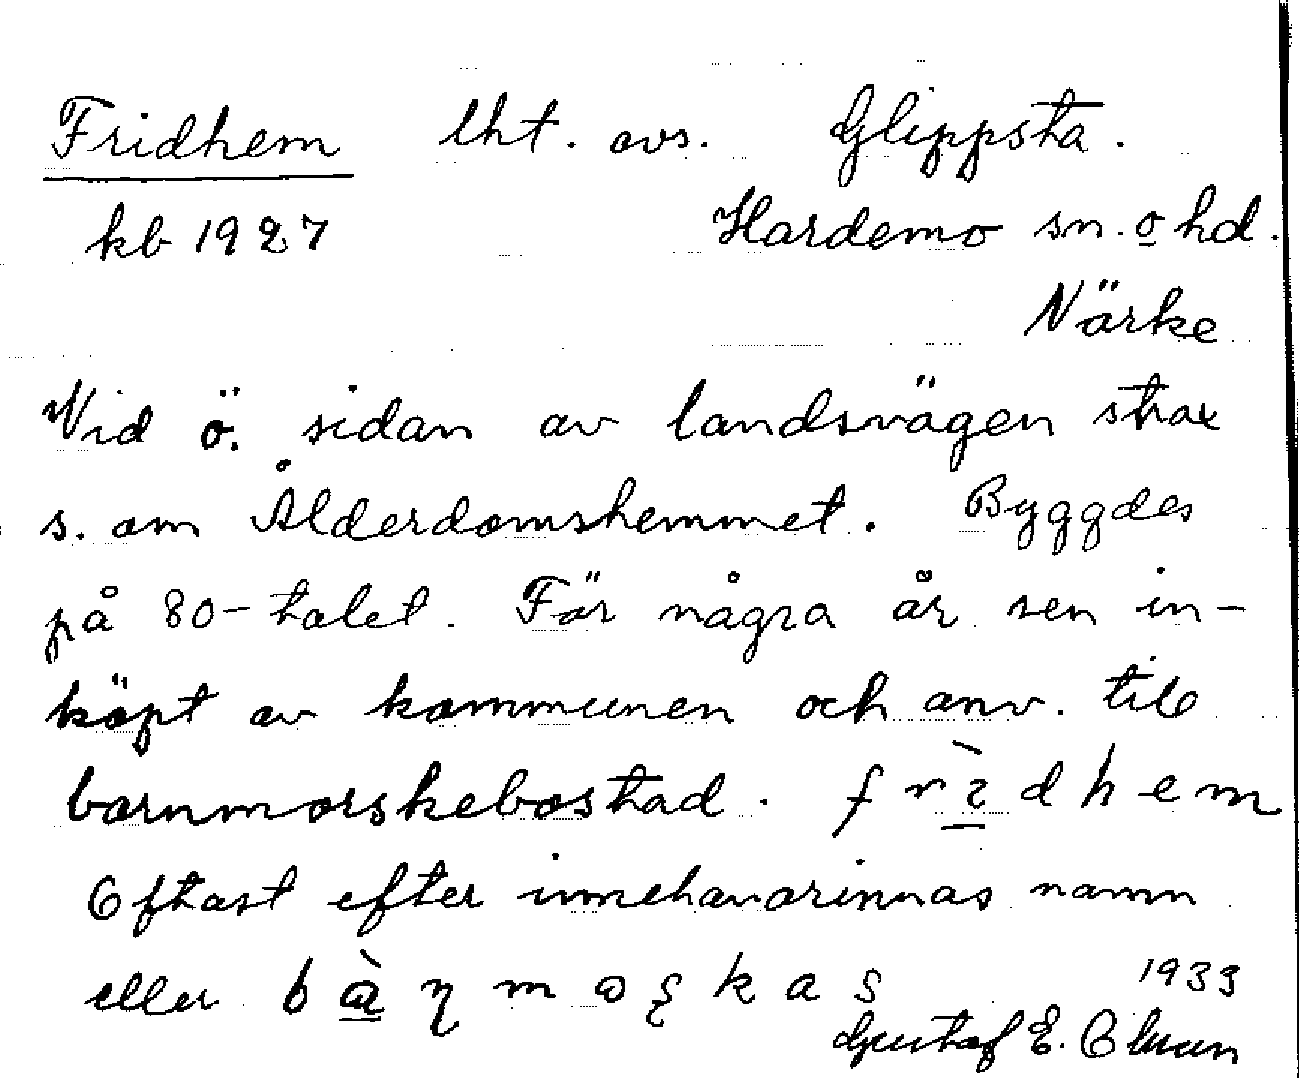 Fridhem lht. avs. Glippsta.
kb 1927 Hardemo sn. o hd.
Närke
Vid ö. sidan av landsvägen strax
s. om Ålderdomshemmet. Byggdes
på 80-talet. För några år sen in-
köpt av kommunen och anv. till
barnmorskebostad. frìdhem
Oftast efter innehavarinnas namn
eller
1933
Gustaf E.